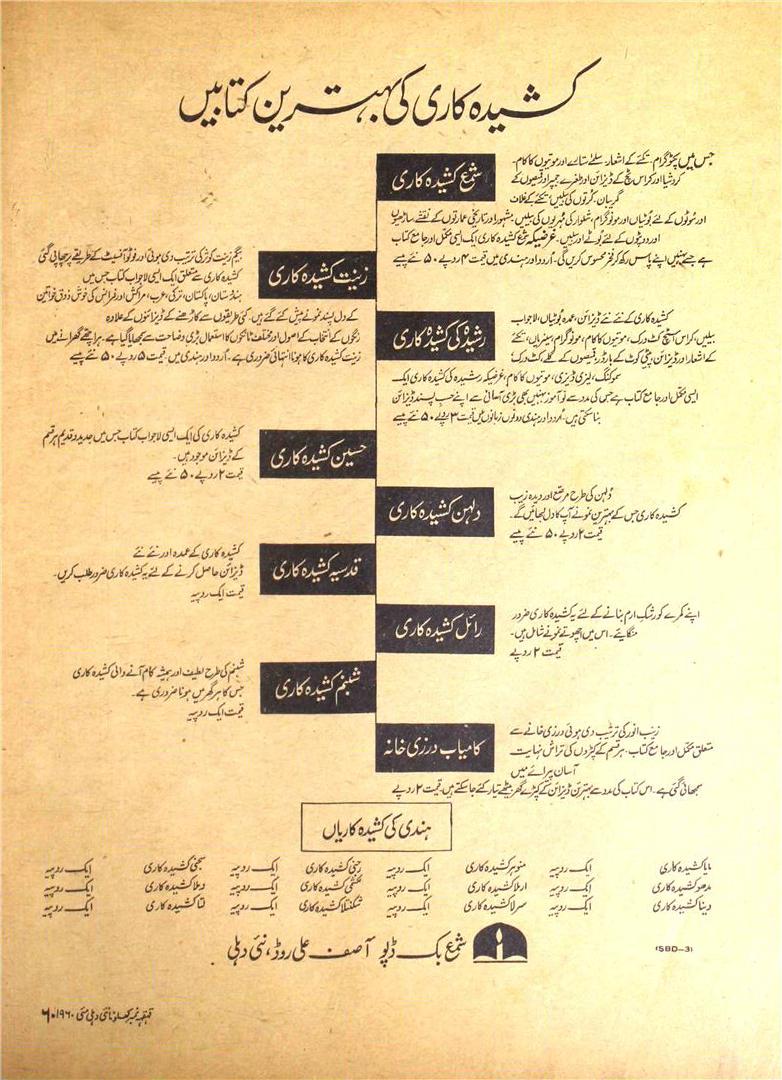 کشیدہ کاری کی بہترین کتابیں
شمع کشیدہ کاری
جس میں پکٹوگرام۔ تکئے کے اشعار۔ سلمٰے ستارے اور موتیوں کا کام۔
کروشیا اور کراس سٹچ کے ڈیزائن اور طغرے جمپر اور قمیصوں کے
گریبان۔ کُرتوں کی بیلیں تکئے کے غلاف
اور موٹوں کے لئے بُوٹیاں اور مونوگرام، شلوار کی مُہریوں کی بیلیں۔ مشہور اور تاریخی عمارتوں کے نقشے ساڑھیوں
اور دوپٹوں کے لئے بُوٹے اور بیلیں۔ غرضیکہ شمع کشیدہ کاری ایک ایسی مکمل اور جامع کتاب
ہے جسے بہنیں اپنے پاس رکھ کر فخر محسوس کریں گی۔ اُردو اور ہندی میں قیمت ۴ روپے ۵۰ نئے پیسے
زینت کشیدہ کاری
بیگم زینت کوثر کی ترتیب دی ہوئی اور فوٹو آفسیٹ کے طریقے پر چھاپی گئی
کشیدہ کاری سے متعلق ایک ایسی لاجواب کتاب جس میں
ہندوستان، پاکستان، ترکی، عرب، مراکش اور فرانس کی خوش ذوق خواتین
کے دل پسند نمونے پیش کئے گئے ہیں۔ کئی طریقوں سے کاڑھنے کے ڈیزائنوں کے علاوہ
رنگوں کے انتخاب کے اصول اور مختلف ٹانکوں کا استعمال بڑی وضاحت سے سمجھایا گیا ہے۔ ہر اچھے گھرانے میں
زینت کشیدہ کاری کا ہونا انتہائی ضروری ہے۔ اُردو اور ہندی میں۔ قیمت ۵ روپے ۵۰ نئے پیسے
رشیدہ کی کشیدہ کاری
کشیدہ کاری کے نئے نئے ڈیزائن، عمدہ بُوٹیاں، لاجواب
بیلیں، کراس سٹیچ کٹ ورک، موتیوں کا کام، مونوگرام، سینریاں، تکئے
کے اشعار اور ڈیزائن، پیٹی کوٹ کے بارڈر، قمیصوں کے گلے، کٹ ورک،
سموکنگ، لیزی ڈیزی، موتیوں کا کام، غرضیکہ رشیدہ کی کشیدہ کاری ایک
ایسی مکمل اور جامع کتاب ہے جس کی مدد سے نو آموز بہنیں بھی بڑی آسانی سے اپنے حسب پسند ڈیزائن
بنا سکتی ہیں۔ اُردو اور ہندی دونوں زبانوں میں قیمت ۳ روپے ۵۰ نئے پیسے
حسین کشیدہ کاری
کشیدہ کاری کی ایک ایسی لاجواب کتاب جس میں جدید و قدیم ہر قسم
کے ڈیزائن موجود ہیں۔
قیمت ۲ روپے ۵۰ نئے پیسے
دلہن کشیدہ کاری
دُلہن کی طرح مرصّع اور دیدہ زیب
کشیدہ کاری جس کے بہترین نمونے آپ کا دل لُبھائیں گے۔
قیمت ۲ روپے ۵۰ نئے پیسے
قدسیہ کشیدہ کاری
کشیدہ کاری کے عمدہ اور نئے نئے
ڈیزائن حاصل کرنے کے لئے یہ کشیدہ کاری ضرور طلب کریں۔
قیمت ایک روپیہ
رائل کشیدہ کاری
اپنے کمرے کو رشکِ ارم بنانے کے لئے یہ کشیدہ کاری ضرور
منگائیے۔ اس میں اچھوتے نمونے شامل ہیں۔
قیمت ۲ روپے
شبنم کشیدہ کاری
شبنم کی طرح لطیف اور ہمیشہ کام آنے والی کشیدہ کاری
جس کا ہر گھر میں ہونا ضروری ہے۔
قیمت ایک روپیہ
کامیاب درزی خانہ
زیب انور کی ترتیب دی ہوئی درزی خانے سے
متعلق مکمل اور جامع کتاب۔ ہر قسم کے کپڑوں کی تراش نہایت
آسان پیرائے میں
سمجھائی گئی ہے۔ اس کتاب کی مدد سے بہترین ڈیزائن کے کپڑے گھر بیٹھے تیار کئے جا سکتے ہیں۔ قیمت ۲ روپے
ہندی کی کشیدہ کاریاں
مایا کشیدہ کاری ایک روپیہ منوہر کشیدہ کاری ایک روپیہ رجنی کشیدہ کاری ایک روپیہ سجنی کشیدہ کاری ایک روپیہ
مدھو کشیدہ کاری ایک روپیہ ارملا کشیدہ کاری ایک روپیہ لکشمی کشیدہ کاری ایک روپیہ وملا کشیدہ کاری ایک روپیہ
وینا کشیدہ کاری ایک روپیہ سرلا کشیدہ کاری ایک روپیہ شکنتلا کشیدہ کاری ایک روپیہ لتا کشیدہ کاری ایک روپیہ
شمع بک ڈپو آصف علی روڈ، نئی دہلی
(SBD-3)
قہقہہ نمبر کھلونا نئی دہلی مئی ۱۹۶۰ء ۶۰